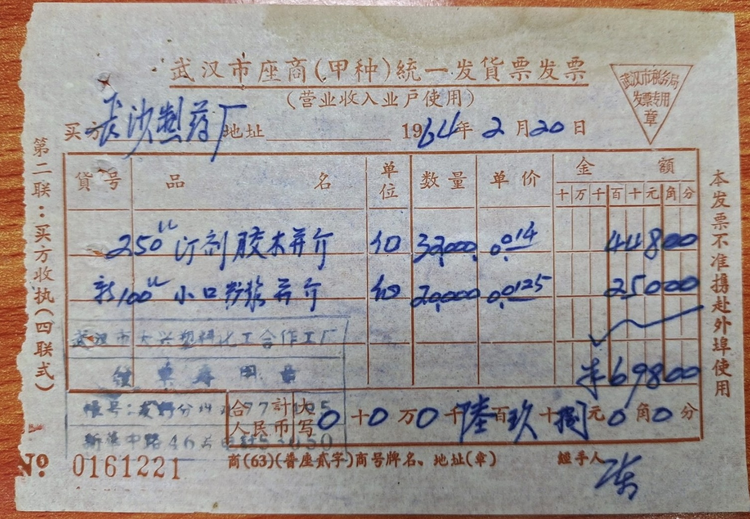 武汉市座商(甲种)統一发貨票发票
(营业收入业户使用)
武汉市税务局
发票专用
章
买方 长沙制药厂 地址 1964年2月20日
貨号 品名 单位 数量 单价 金额
十万千百十元角分
250 汀剂胶木并介 32000 0.014 44800
新100 小口 并介 20000 0.0125 25000
武汉市大兴塑料化工合作工厂
¥69800
合計大写
人民币 0十0万0千陆百玖十捌元0角0分
№ 0161221
商(63)(普座貳字)商号牌名、地址(章) 經手人
第二联：买方收执(四联式)
本发票不准携赴外埠使用